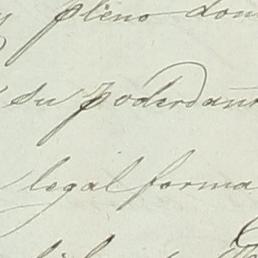 y pleno dom
su poderdan
legal forma